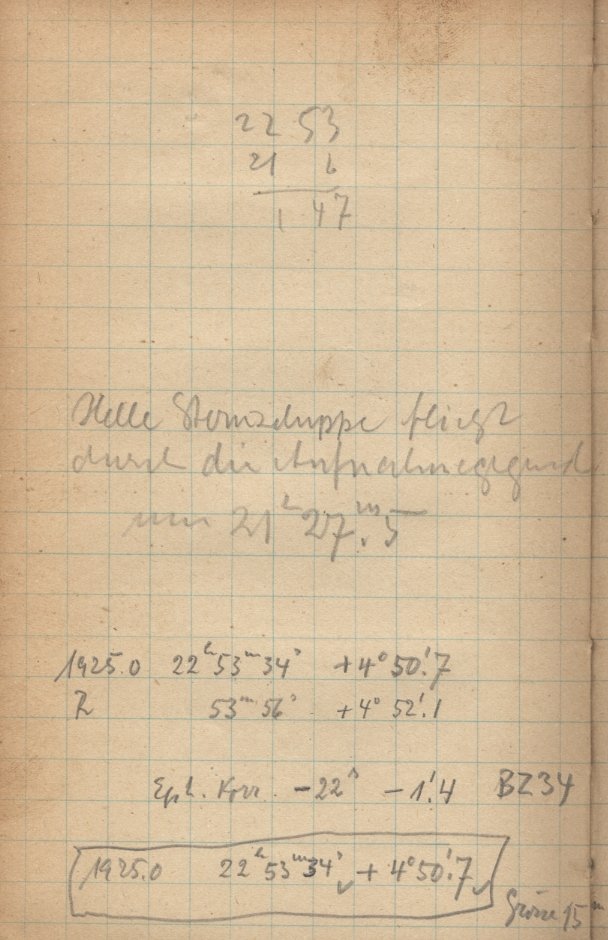 22 53
21 6
1 47
Helle Sternschnuppe fliegt
durch die Aufnahmegegend
um 21ʰ 27ᵐ.5
1925.0 22ʰ 53ᵐ 34ˢ +4° 50'.7
53ᵐ 56ˢ +4° 52'.1
Eph. Korr. -22ˢ -1'.4 BZ34
1925.0 22ʰ 53ᵐ 34ˢ + 4° 50'.7
Grösse 15ᵐ